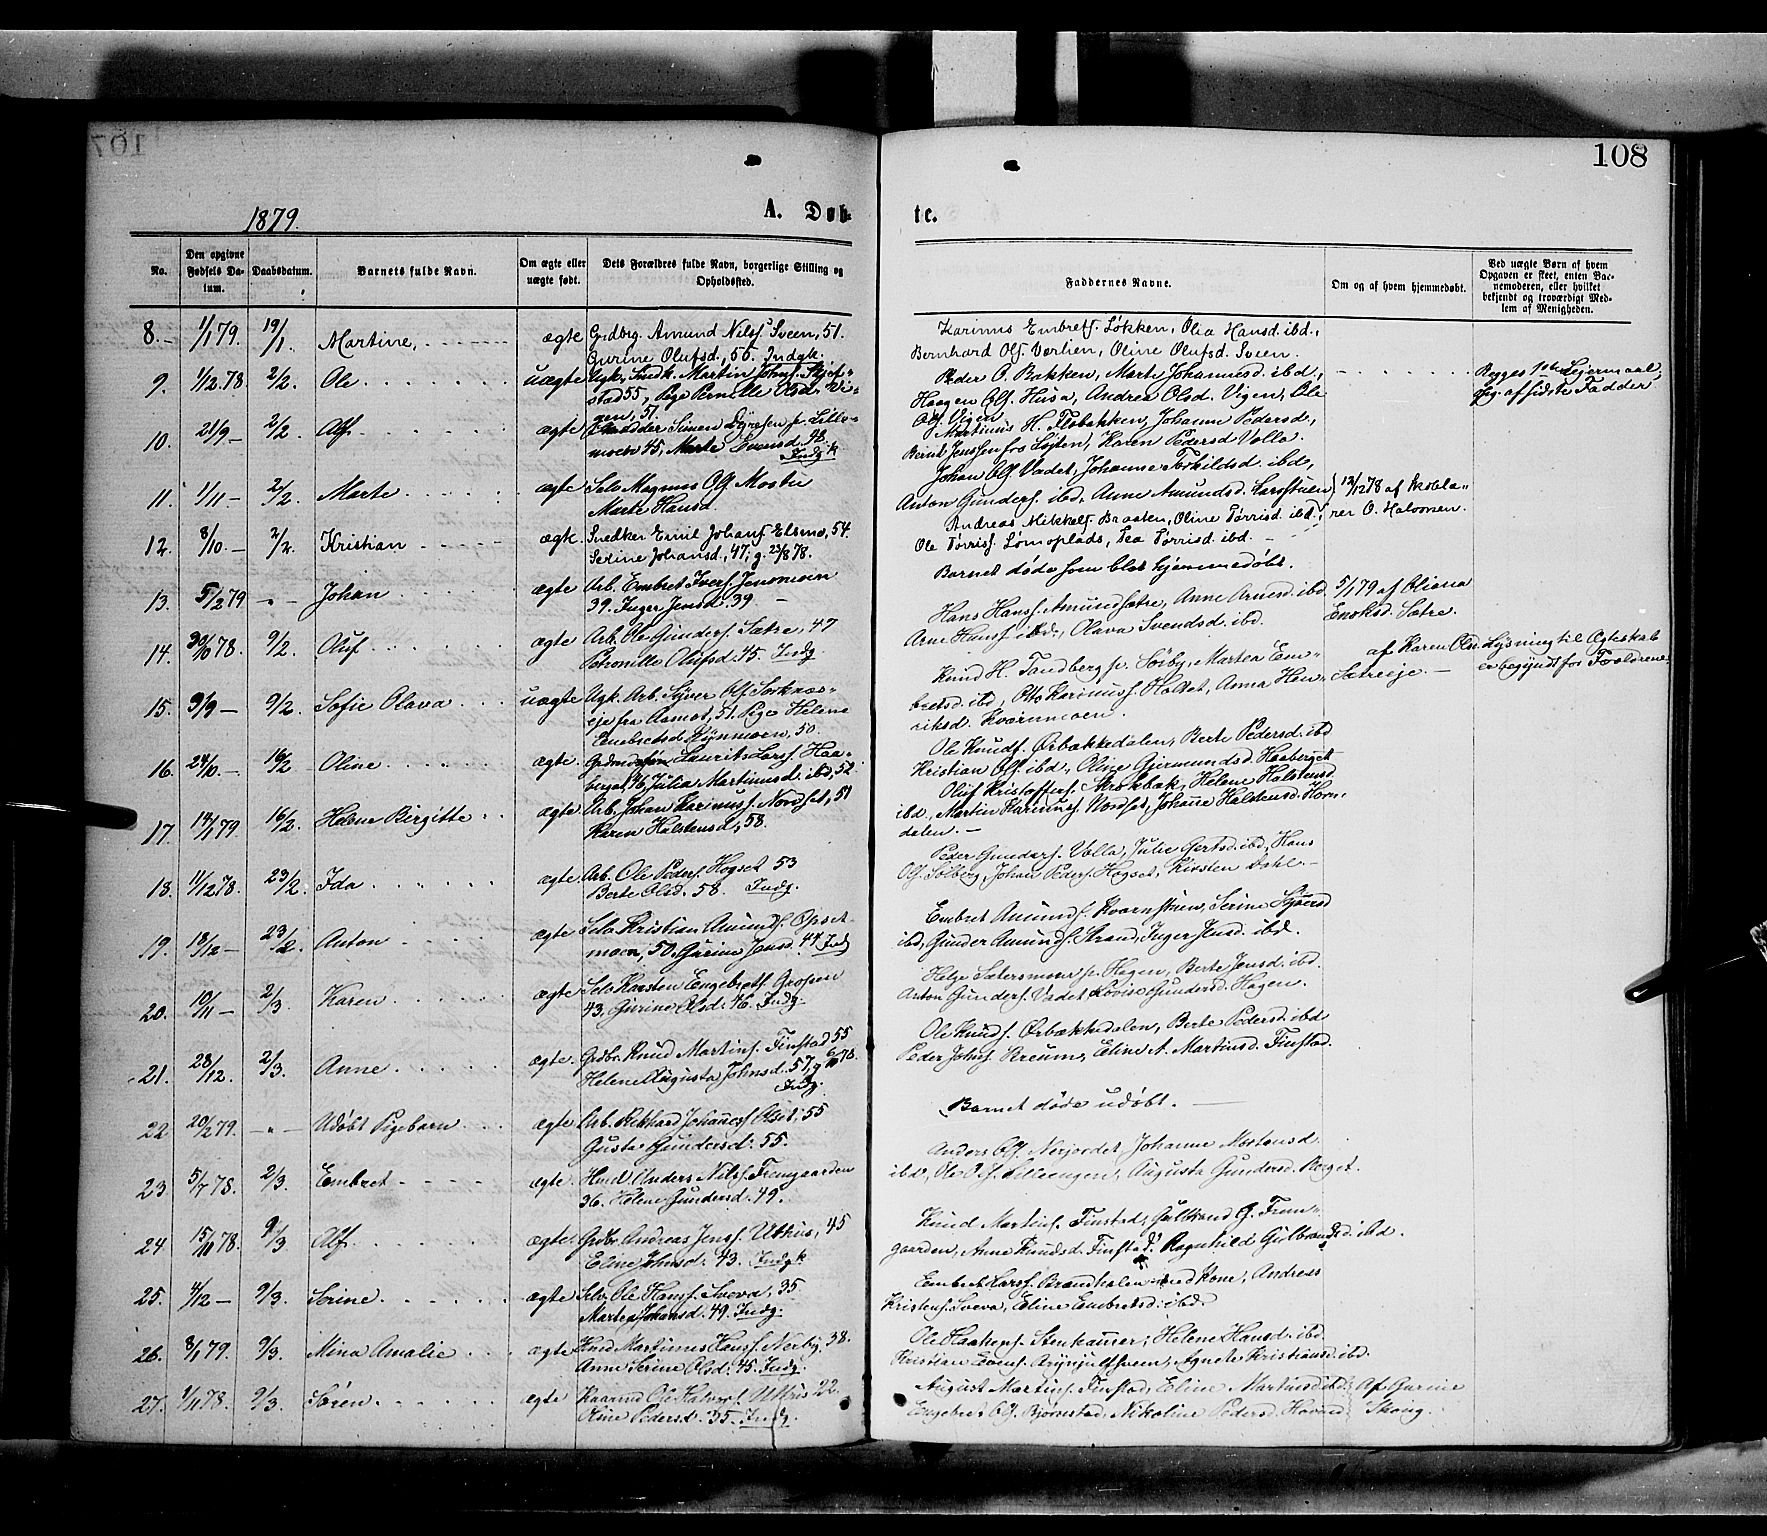 108
1879.
A. Døb-
te.
No.
Den opgivne Fødsels Da- tum.
Daabsdatum.
Barnets fulde Navn.
Om ægte eller uægte født.
Dets Forældres fulde Navn, borgerlige Stilling og Opholdssted.
Faddernes Navne.
Om og af hvem hjemmedøbt.
Ved uægte Børn af hvem Opgaven er skeet, enten Bar- nemoderen, eller hvilket bekjendt og troværdigt Med- lem af Menigheden.
8. 1/1 79. 19/1. Martine, ægte Grdbrg. Amund Nilss. Sveen, 51.
Gurine Olufsd., 55. Indgk.
Karinus Embrets. Løkken, Olia Hansd. ibd.,
Bernhard Ols. Værlien, Oline Olufsd. Sveen.
9. 1/12 78 2/2. Ole uægte Ugk. Snedk. Martin Johns. Skjef-
stad 55, Pige Pernille Olsd. Vi-
gen, 57.
Peder O. Bakken, Marte Johannesd. ibd,
Haagen Ols. Husa, Andrea Olsd. Vigen, Ole
Ols. Vigen
Begges 1ste Leiermaal,
Opg. af sidste Fadder
10. 21/9 - 2/2. Alf ægte Simen p. Lille-
moen 45, Marte Svensd. 42.
Indgk
Martinus H. Flobakken, Johanne Pedersd,
Bernt Jenssen fra Løiten, Karen Pedersd Volla.
11. 1/11 - 2/2. Marte ægte Selv. Magnus Ols. Mostu
Marte Hansd.
Johan Ols. Vadet, Johanne Torkildsd. ibd,
Anton Gunders. ibd, Anne Amundsd.
12/12 78 af Skolelæ-
rer O. Halvorsen.
12. 8/10. - 2/2. Kristian ægte. Snedker Emil Johans. Elsmo, 54.
Serine Johansd., 47, g. 23/8 78.
Andreas Mikkels. Braaten, Oline Tørrisd. ibd.,
Ole Tørriss. Lømoplads, Lea Tørrisd. ibd.
13. 5/2 79 „ - Johan ægte Arb. Embret Ivers. Jensmoen
39. Inger Jensd. 39 -
Barnet døde som blot hjemmedøbt.
5/1 79 af Oliana
Enoksd. Sætre.
14. 30/10 78. 9/2. Oluf ægte Arb. Ole Gunders. Sætre, 47
Petronille Olufsd. 45. Indg
Hans Hanss. Amundsætre, Anne Arnesd. ibd
Arne Hanss. ibd., Olava Svendsd. ibd.
15. 9/9 - 9/2. Sofie Olava uægte Ugk. Arb. Syver Ols. Sorknæs-
eje fra Aamot, 51. Pige Helene
Embretsd Kynnmoen, 50
Knud H. Tandberg p. Sørby, Martea Em-
bretsd. ibd, Otto Karinuss. Holtet, Anna Hen-
riksd. Kværnmoen.
af Karen Olsd.
Sætreeje. -
Lysning til Ægteskab
er begyndt for Forældrene.
16. 24/10. - 16/2. Oline ægte Laurits Larss. Haa-
berget 46, Julia Martinusd. ibd, 52
Ole Knuds. Ørbækkedalen, Berte Pedersd. ibd
Kristian Ols. ibd, Oline Gjermundsd Haaberget
17. 14/1 79 16/2. Helene Birgitte ægte Arb. Johan Karinuss. Nordset, 51
Karen Halstensd, 58.
Oluf Kristoffers. Skrokbæk, Helene Halstensd
ibd, Martin Karinuss Nordset, Johanne Halstensd. Horn-
dalen. -
18. 11/12 78. 23/2. Ida ægte. Arb. Ole Peders. Hogset 53
Berte Olsd. 58. Indg.
Peder Gunders. Volla, Julie Gertsd. ibd, Hans
Ols. Solberg, Johan Peders. Hogset, Kirsten Dahl. -
19. 18/12 - 23/2. Anton ægte Selv. Kristian Amunds. Opset-
moen, 50. Gurine Jensd. 44 Indg
Embret Amunds. Kværnstuen, Serine Sjuersd
ibd, Gunder Amunds. Strand, Inger Jensd. ibd.
20. 10/11 - 2/3. Karen ægte Selv. Karsten Engebrets. Grafsen
43, Gurine Olsd. 46. Indg.
Helge Sætersmoen p. Hagen, Berte Jensd. ibd.
Anton Gunders. Vadet, Lovise Gundersd. Hagen.
21. 28/12. 2/3. Anne ægte. Grdbr. Knud Martins. Finstad 55
Helene Augusta Johnsd. 57, g 6/10 78.
Indg.
Ole Knuds. Ørbækkedalen, Berte Pedersd. ibd
Peder Johs. Kreum, Eline A. Martinsd. Finstad.
22 20/2 79. - „ - Udøbt Pigebarn ægte. Arb. Rikhard Johaness. Olset. 55
Gusta Gundersd. 55.
Barnet døde udøbt.
23 5/7 78. 2/3. Embret ægte. Husd. Anders Nilss. Framgaarden
36. Helene Gundersd. 49.
Anders Ols. Nerjordet, Johanne Mortensd.
ibd, Ole O. s. Lilleengen, Augusta Gundersd. Berget.
24 15/10 78. 9/3 Alf. ægte. Grdbr. Andreas Jenss. Uthus, 45
Eline Johnsd. 43. Indgk
Knud Martins. Finstad, Gulbrand G. Fram-
gaarden, Anne Knudsd. Finstad, Ragnhild Gulbrandsd. ibd.
25. 4/12 - 9/3. Serine ægte Selv. Ole Hanss. Sveva, 35.
Martea Johansd. 49. Indg.
Embret Larss. Brændhalen med Kone, Andreas
Kristens. Sveva, Eline Embretsd. ibd.
26. 8/1 79. 9/3. Mina Amalie ægte Husd Martinus Hanss. Nerby, 38.
Anne Serine Olsd. 45. Indg.
Ole Haakens. Stenkasser, Helene Hansd. ibd
Kristian Evens. Arynjulfsveen, Agnete Kristiansd. ibd.
27. 1/11 78. 9/3. Søren ægte Kaarmd Ole Halvors. Uthus 22.
Oline Pedersd. 35. Indg.
August Martins. Finstad, Eline Martinsd ibd.
Engebret Ols. Bjørnstad, Nikoline Pedersd. Hovind
Af Gurine
Skoug.